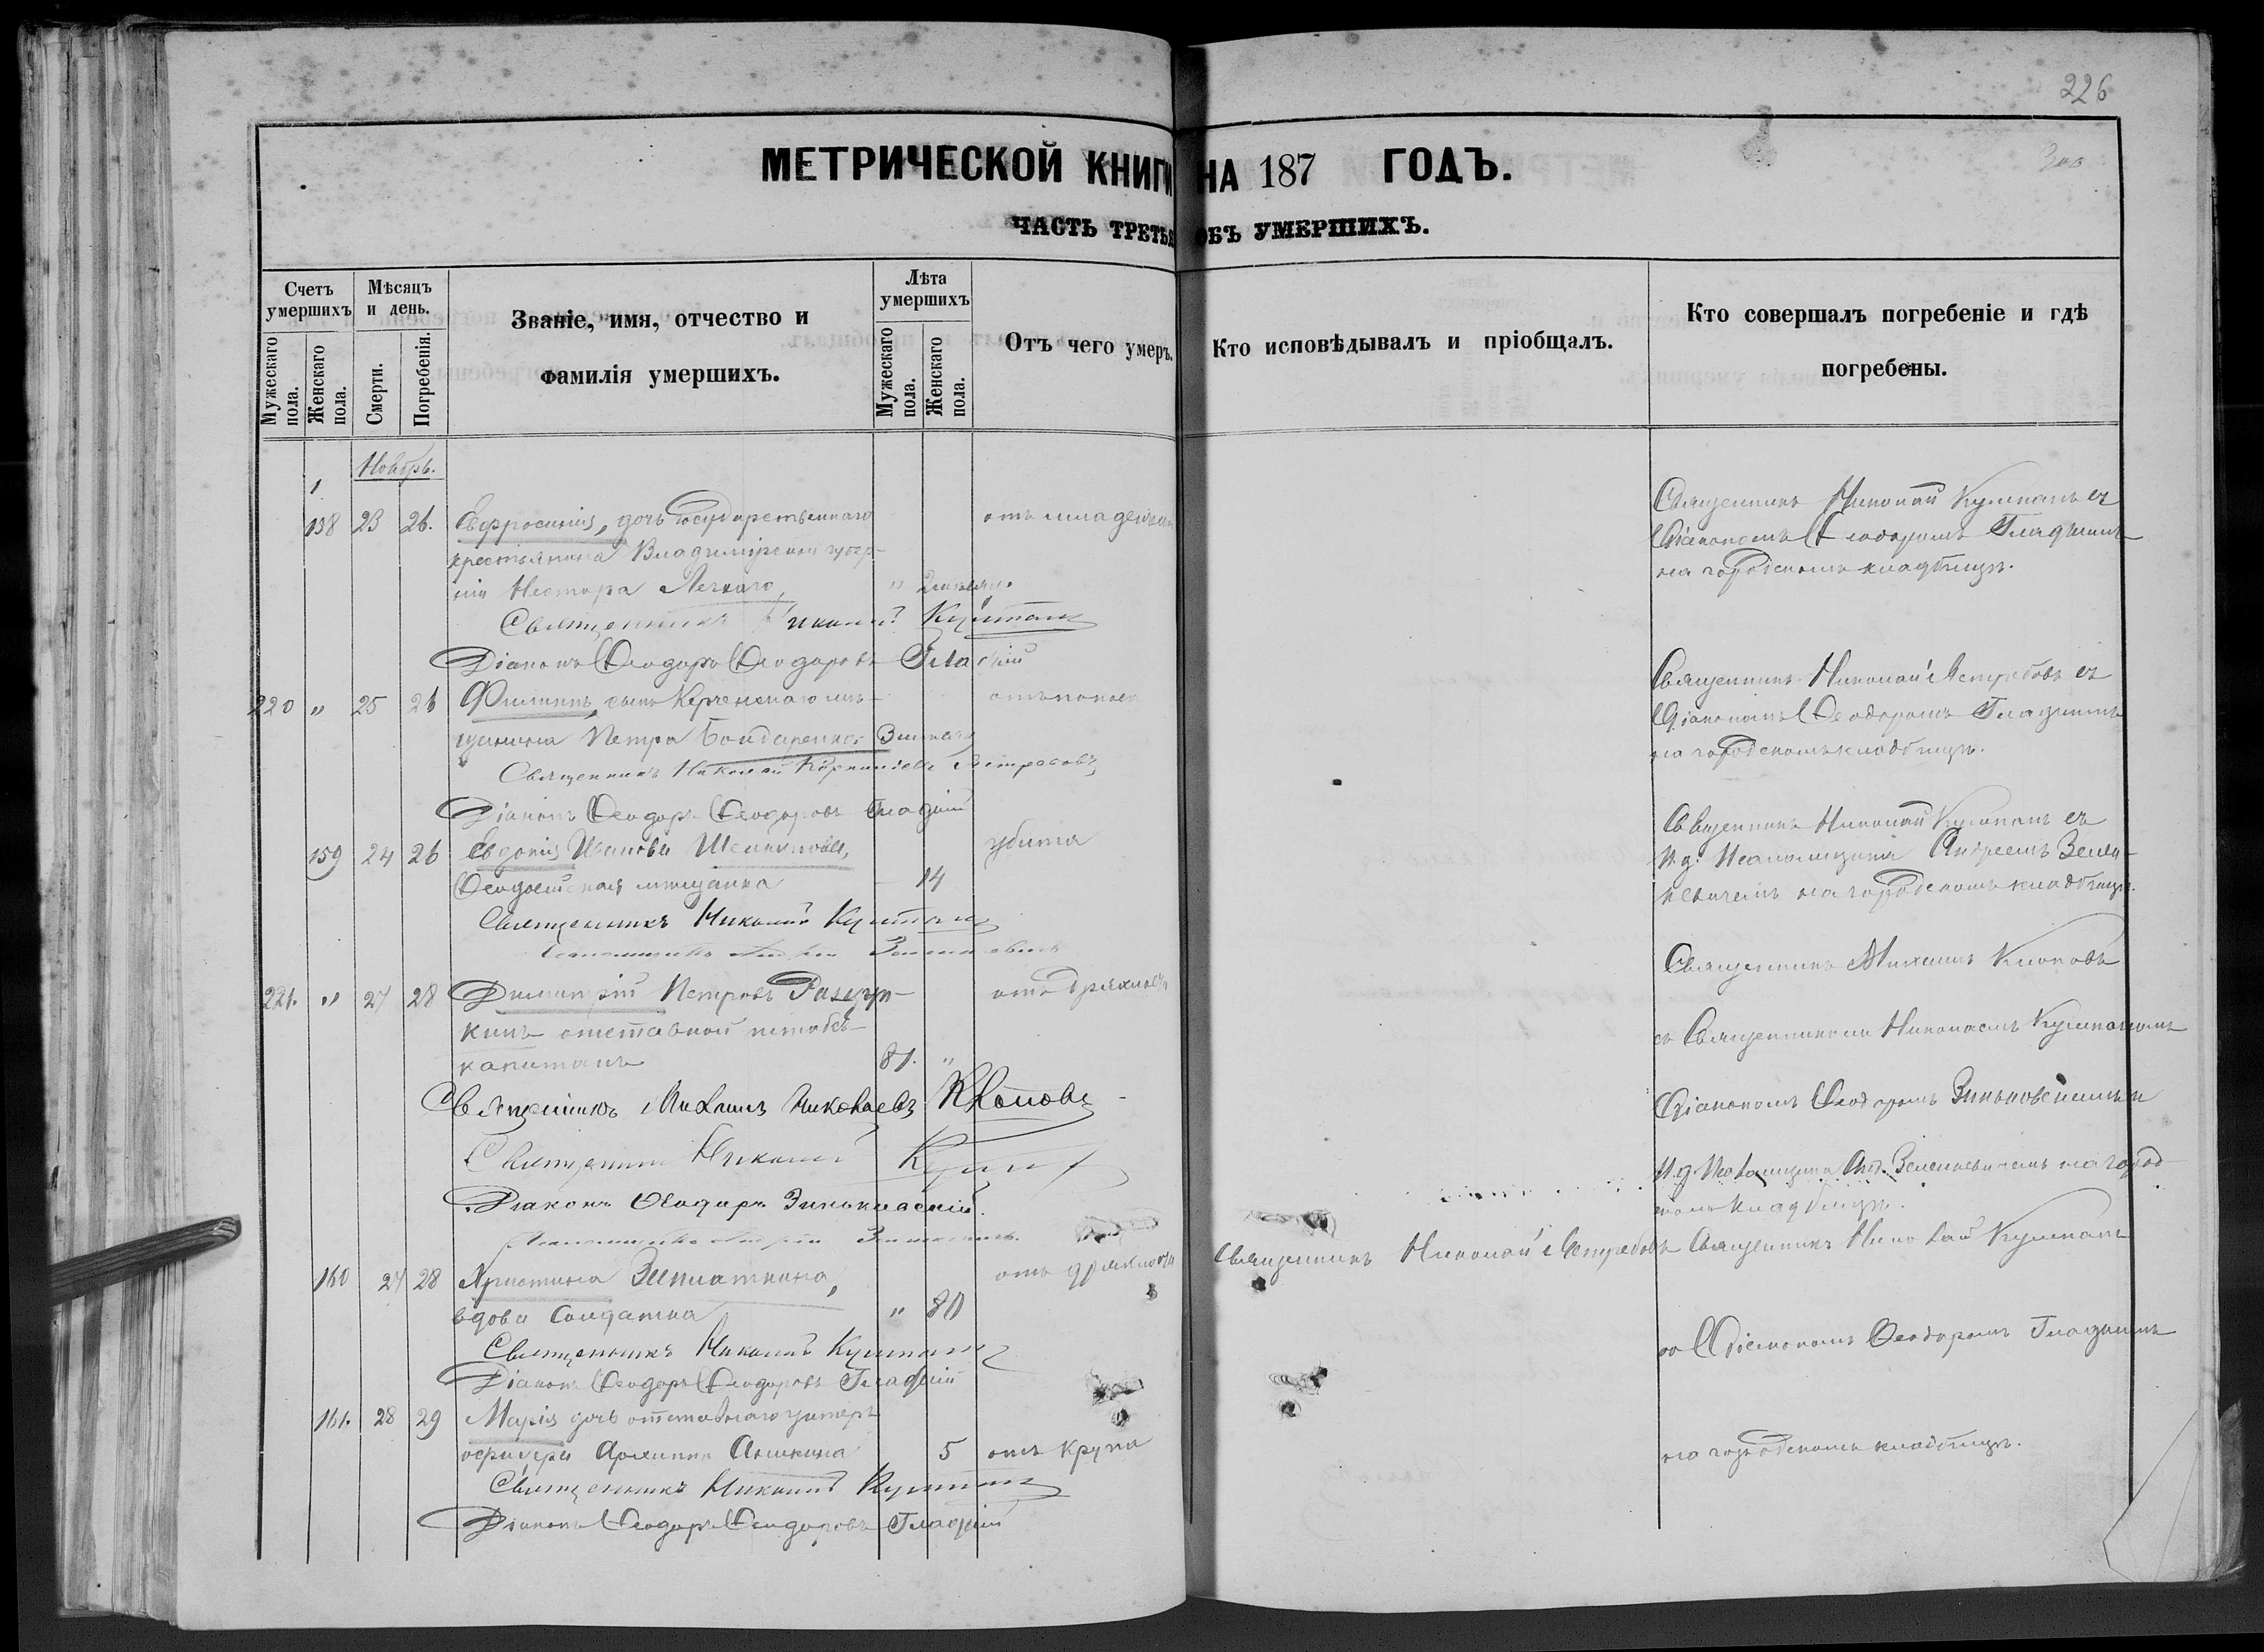 226
МЕТРИЧЕСКОЙ КНИГИ НА 187 ГОДЪ.
ЧАСТЬ ТРЕТЬЯ ОБЪ УМЕРШИХЪ.
Счетъ умершихъ
Мужескаго пола.
Женскаго пола.
Мѣсяцъ и день.
Смерти.
Погребенія.
Званіе, имя, отчество и фамилія умершихъ.
Лѣта умершихъ
Мужескаго пола.
Женскаго пола.
Отъ чего умеръ.
Кто исповѣдывалъ и пріобщалъ.
Кто совершалъ погребеніе и гдѣ погребены.
Ноябрь.
158 23 26. Евфросинія, дочь государственнаго
крестьянина Владимірской губер-
ніи Нестора
Священникъ Николай Кушпанъ
Діаконъ Ѳеодоръ Ѳеодоровъ Гладкій
Священникъ Николай Кушпанъ съ
Діакономъ Ѳеодоромъ Гладкимъ
на городскомъ кладбищѣ.
220 " 25 26 Филиппъ, сынъ Керченскаго мѣ-
щанина Петра Бондаренко
Священникъ Николай Ястребовъ
Діаконъ Ѳеодоръ Ѳеодоровъ Гладкій
Священникъ Николай Ястребовъ съ
Діакономъ Ѳеодоромъ Гладкимъ
на городскомъ кладбищѣ.
159 24 26 Евдокія Иванова убита
Ѳеодосійская мѣщанка 14
Священникъ Николай Кушпанъ
Псаломщикъ Андрей
Священникъ Николай Кушпанъ съ
И. д. Псаломщика Андреемъ Зелен-
кевичемъ на городскомъ кладбищѣ.
221. " 27 28 Димитрій Петровъ отъ дряхлости
отставной штабсъ-
капитанъ 81. "
Священникъ Михаилъ Николаевъ Клоповъ
Священникъ Николай Кушпанъ
Діаконъ Ѳеодоръ Зиньковскій.
Псаломщикъ Андрей
Священникъ Михаилъ Клоповъ
съ Священникомъ Николаемъ Кушпаномъ
Діакономъ Ѳеодоромъ Зиньковскимъ и
И. д. Псаломщика Анд. Зеленкевичемъ на город-
скомъ кладбищѣ.
160 27 28 Христина отъ дряхлости
вдова солдатка " 80
Священникъ Николай Кушпанъ
Діаконъ Ѳеодоръ Ѳеодоровъ Гладкій
Священникъ Николай Ястребовъ
Священникъ Николай Кушпанъ
со Діакономъ Ѳеодоромъ Гладкимъ
161. 28 29 Марія дочь отставнаго унтеръ
офицера Аникина 5 отъ крупа
Священникъ Николай Кушпанъ
Діаконъ Ѳеодоръ Ѳеодоровъ Гладкій
на городскомъ кладбищѣ.